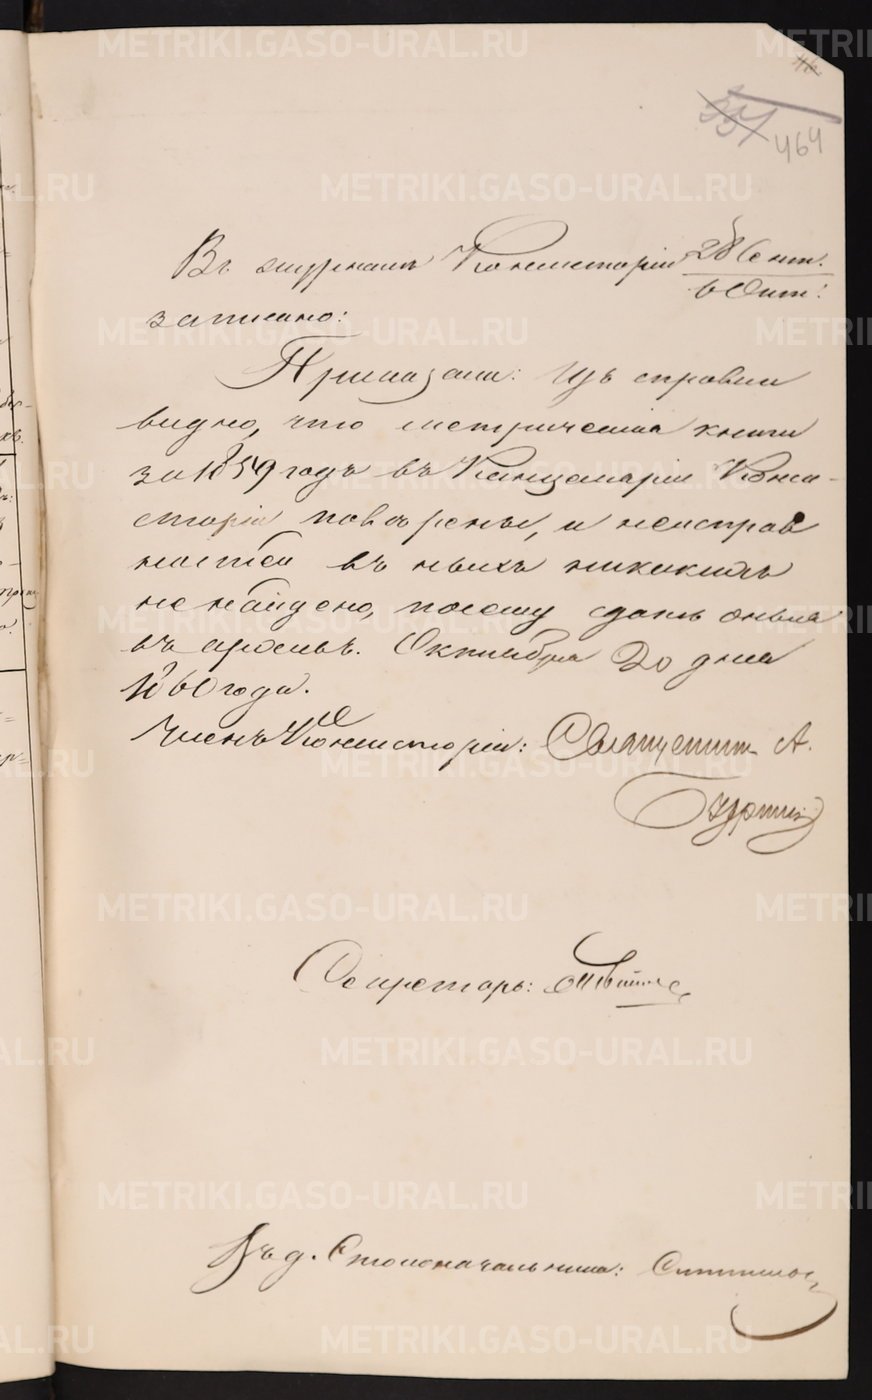 METRIKI.GASO-URAL.RU
464
Въ журналѣ Консисторіи 28 Сент.
6 Окт.
записано:
Приказали: Изъ справки
видно, что метрическія книги
за 1859 годъ въ Канцеляріи Конси-
сторіи повѣрены, и неисправ
ностей въ нихъ никакихъ
не найдено, посему сдать оныя
въ архивъ. Октября 20 дня
1860 года.
Членъ Консисторіи: Священник А.
Секретарь:
Въ д. Столоначальника: